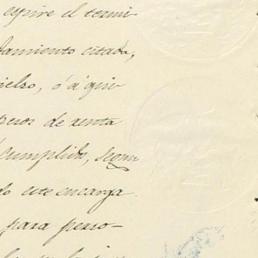 espire el termi
damiento citada,
ielso, ó á quie
pesos de renta
cumplido, segun
do este encarga
para perso-